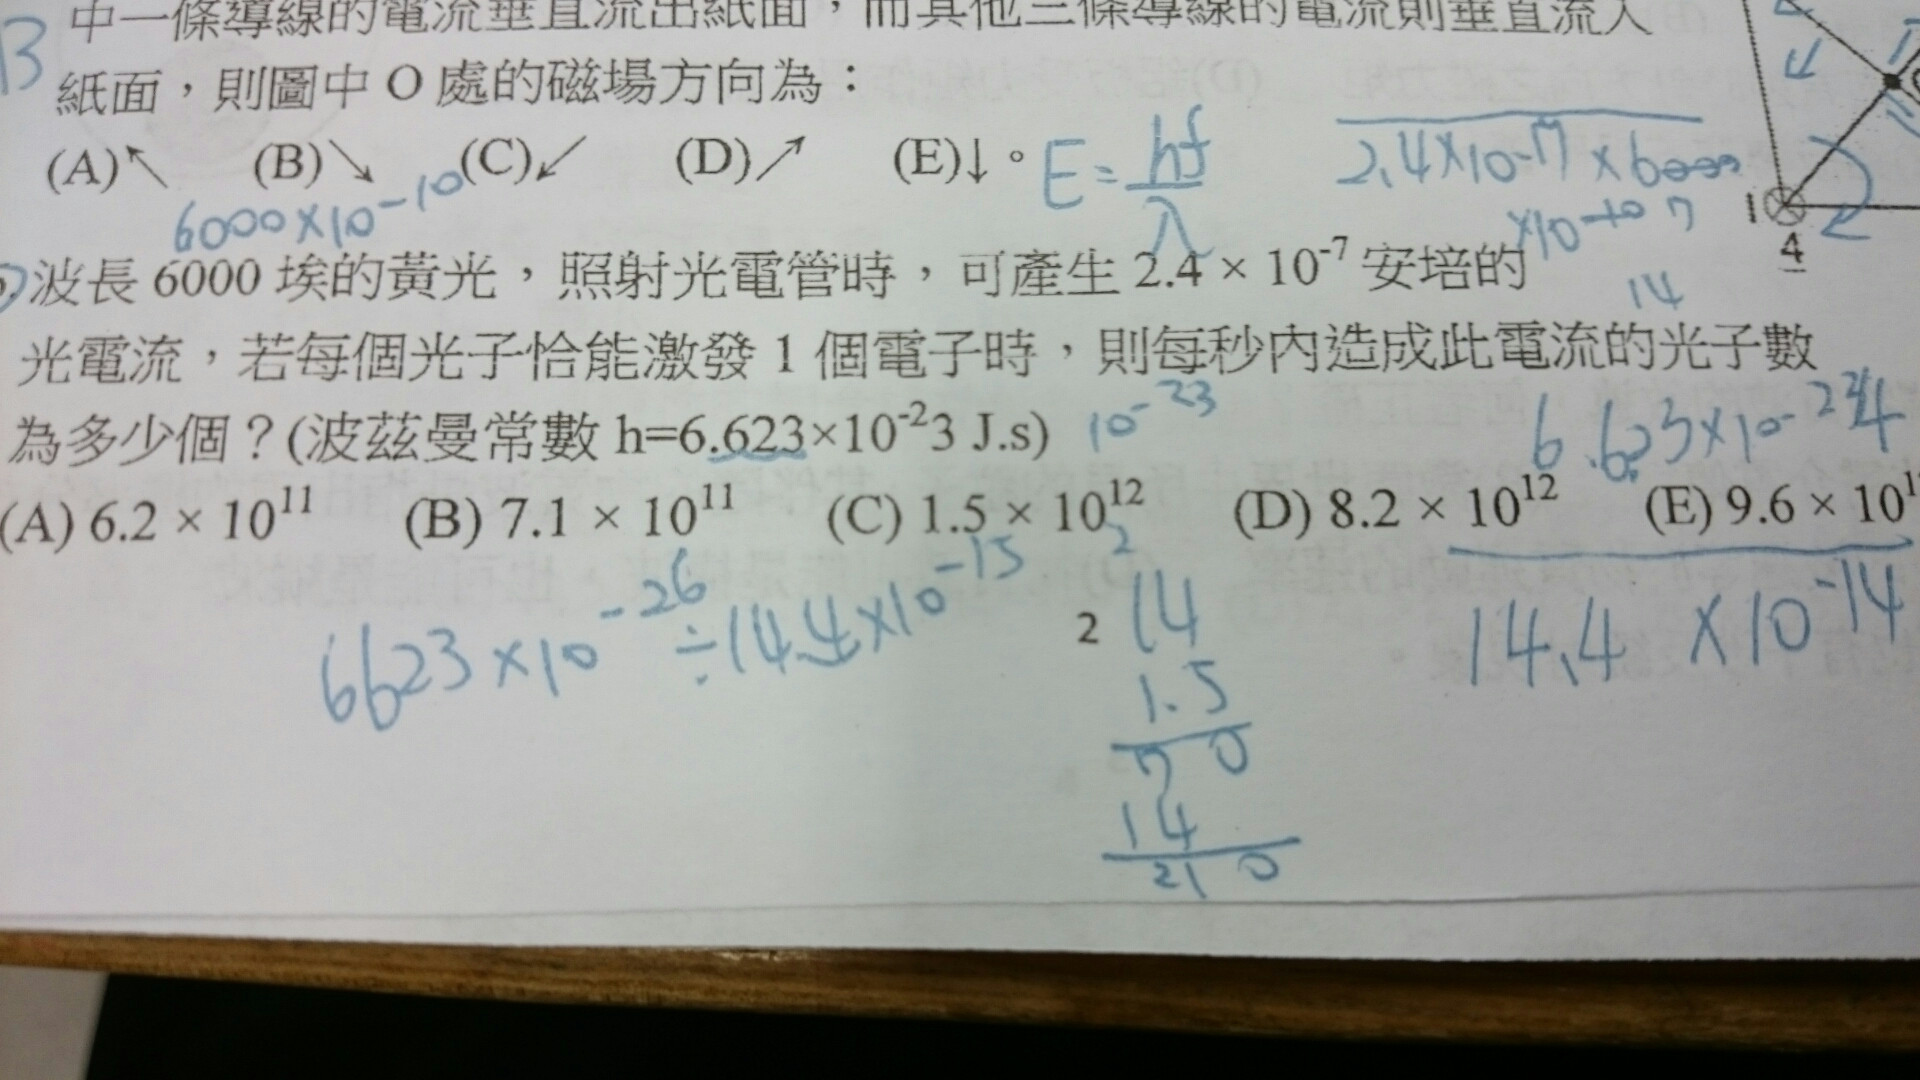 中一條導線的電流垂直流出紙面，而其他三條導線的電流則垂直流入
B
紙面，則圖中 O 處的磁場方向為：
(A)↖ (B)↘ (C)↙ (D)↗ (E)↓。
E = hf/λ
2.4×10-7 × 6000
×10-10 7
6000×10-10
1
4
波長 6000 埃的黃光，照射光電管時，可產生 2.4 × 10-7 安培的
14
光電流，若每個光子恰能激發 1 個電子時，則每秒內造成此電流的光子數
為多少個？(波茲曼常數 h=6.623×10-23 J.s)
10-23
6.623×10-34
(A) 6.2 × 10^11 (B) 7.1 × 10^11 (C) 1.5 × 10^12 (D) 8.2 × 10^12 (E) 9.6 × 10
6623×10-26÷14.4×10-15
14.4 ×10-14
2
2
14
1.5
70
14
210